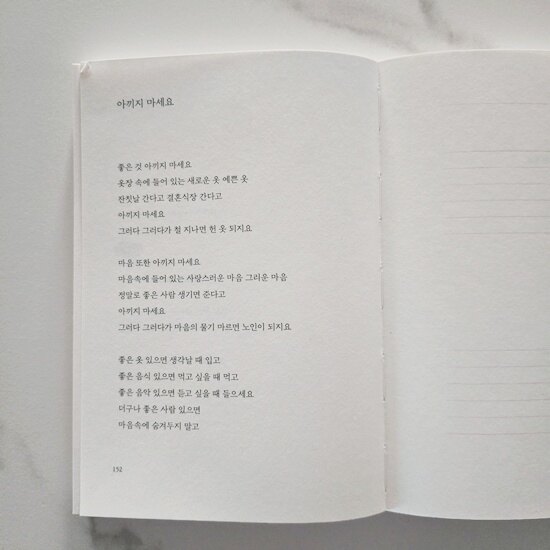 아끼지 마세요
좋은 것 아끼지 마세요
옷장 속에 들어 있는 새로운 옷 예쁜 옷
잔칫날 간다고 결혼식장 간다고
아끼지 마세요
그러다 그러다가 철 지나면 헌 옷 되지요
마음 또한 아끼지 마세요
마음속에 들어 있는 사랑스러운 마음 그리운 마음
정말로 좋은 사람 생기면 준다고
아끼지 마세요
그러다 그러다가 마음의 물기 마르면 노인이 되지요
좋은 옷 있으면 생각날 때 입고
좋은 음식 있으면 먹고 싶을 때 먹고
좋은 음악 있으면 듣고 싶을 때 들으세요
더구나 좋은 사람 있으면
마음속에 숨겨두지 말고
152